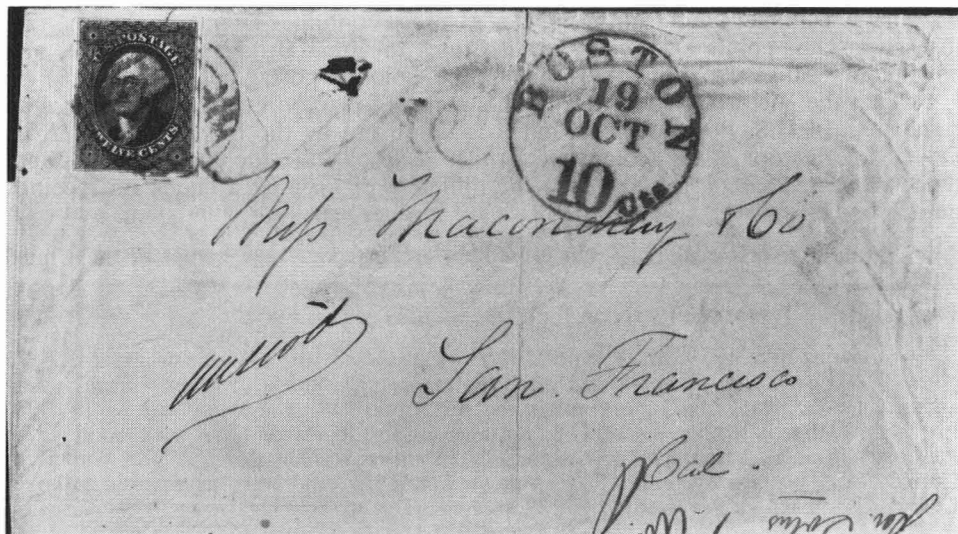 U.S. POSTAGE
TWELVE CENTS
BOSTON
19
OCT
10 Cts.
Mess Macondray & Co
San Francisco
Cal.